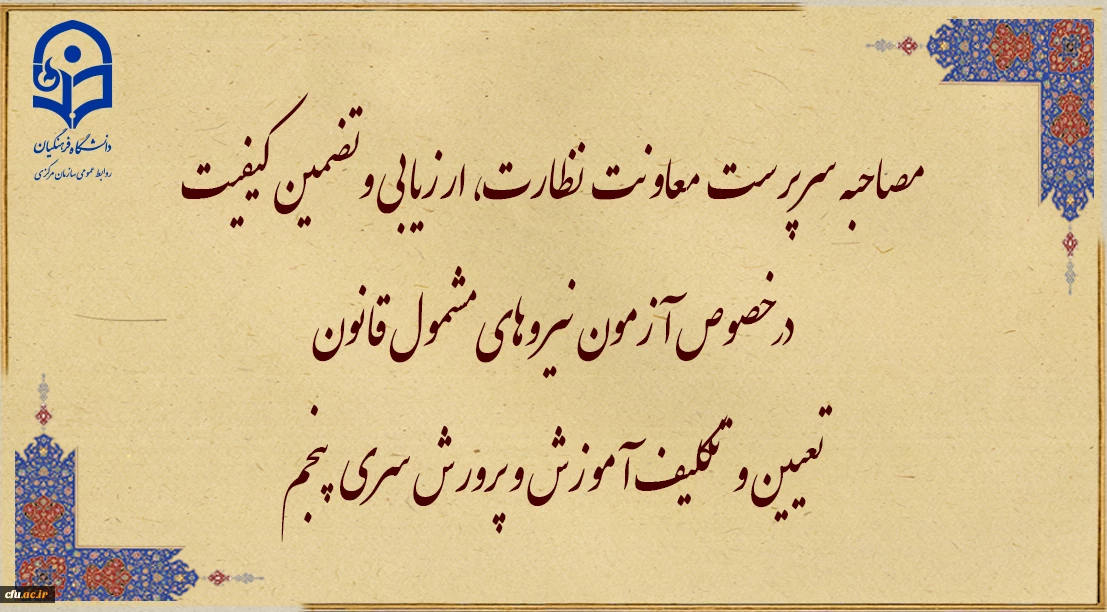 دانشگاه فرهنگیان
روابط عمومی سازمان مرکزی
مصاحبه سرپرست معاونت نظارت، ارزیابی و تضمین کیفیت
درخصوص آزمون نیروهای مشمول قانون
تعیین و تکلیف آموزش و پرورش سری پنجم
cfu.ac.ir